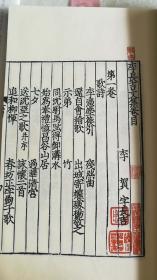 李長吉文集目
李賀 字長吉
第一卷
歌詩
李憑箜篌引 殘絲曲
還自會稽歌 出城寄權璩楊敬之
示弟 竹
同沈駙馬賦得御溝水
始為奉禮憶昌谷山居
七夕 過華清宮
送沈亞之歌并序 詠懷二首
追和柳惲 春坊正字劍子歌